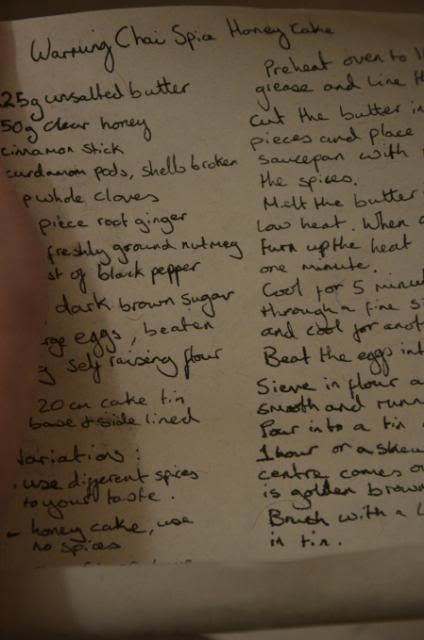 Warming Chai Spice Honey Cake
25g unsalted butter
50g clear honey
cinnamon stick
cardamom pods, shells broken
whole cloves
piece root ginger
freshly ground nutmeg
of black pepper
dark brown sugar
eggs, beaten
g self raising flour
20cm cake tin
base & side lined
Variations :
use different spices
to your taste.
- honey cake, use
no spices
Preheat oven to 1
grease and line th
Cut the butter in
pieces and place
saucepan with
the spices.
Melt the butter
low heat. When
turn up the heat
one minute.
Cool for 5 minu
through a fine si
and cool for anot
Beat the eggs int
Sieve in flour a
smooth and runn
Pour into a tin
1 hour or a skew
centre comes o
is golden brow
Brush with a
in tin.